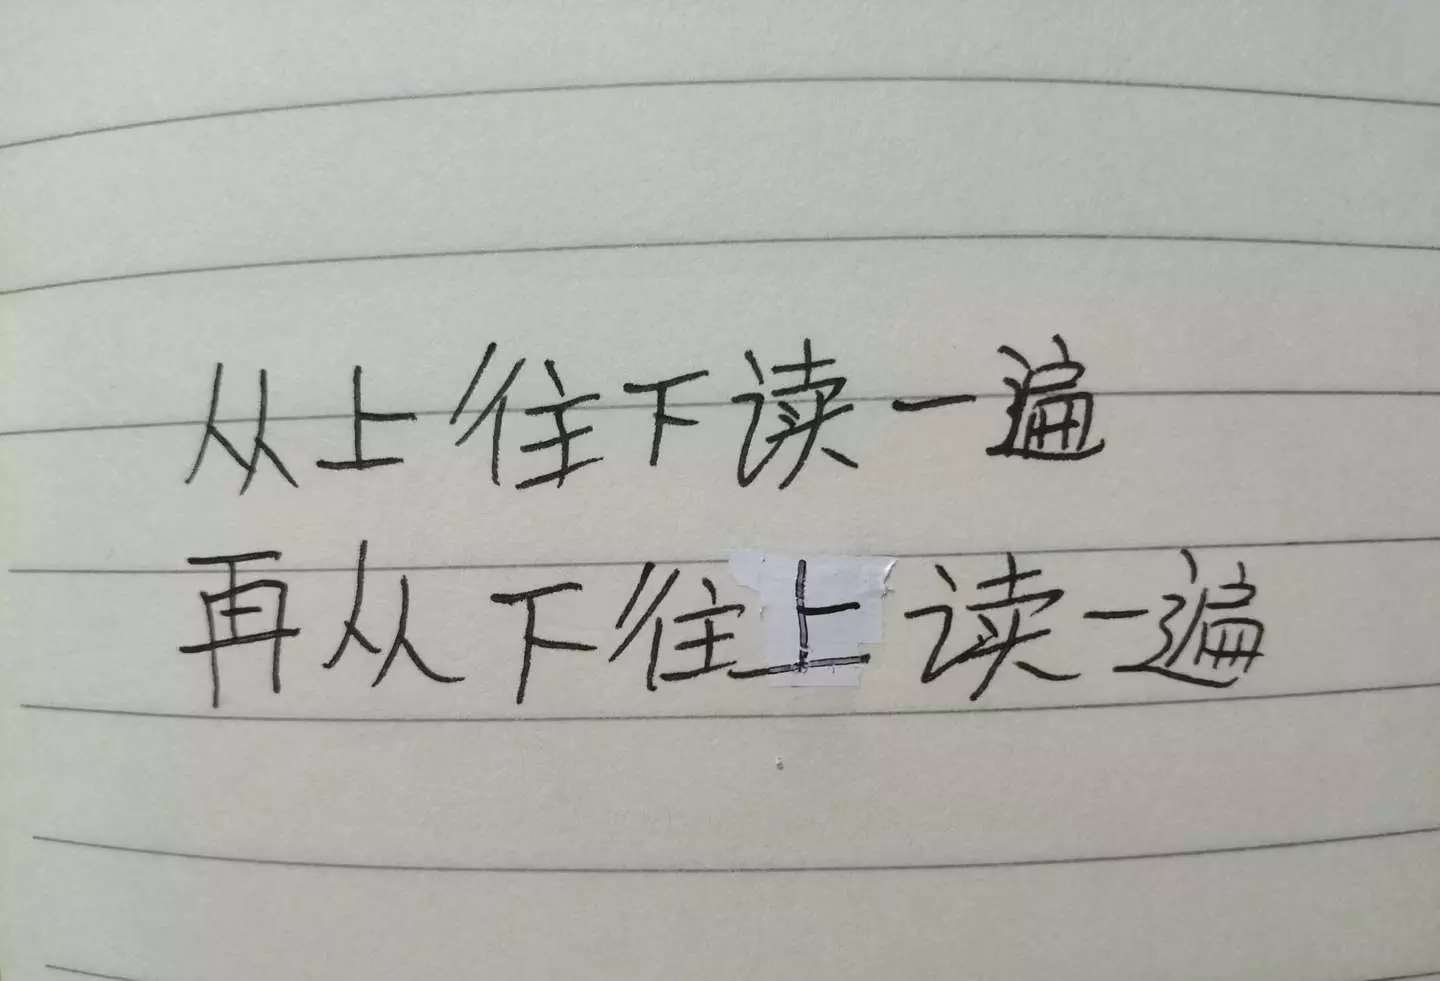 从上往下读一遍
再从下往上读一遍